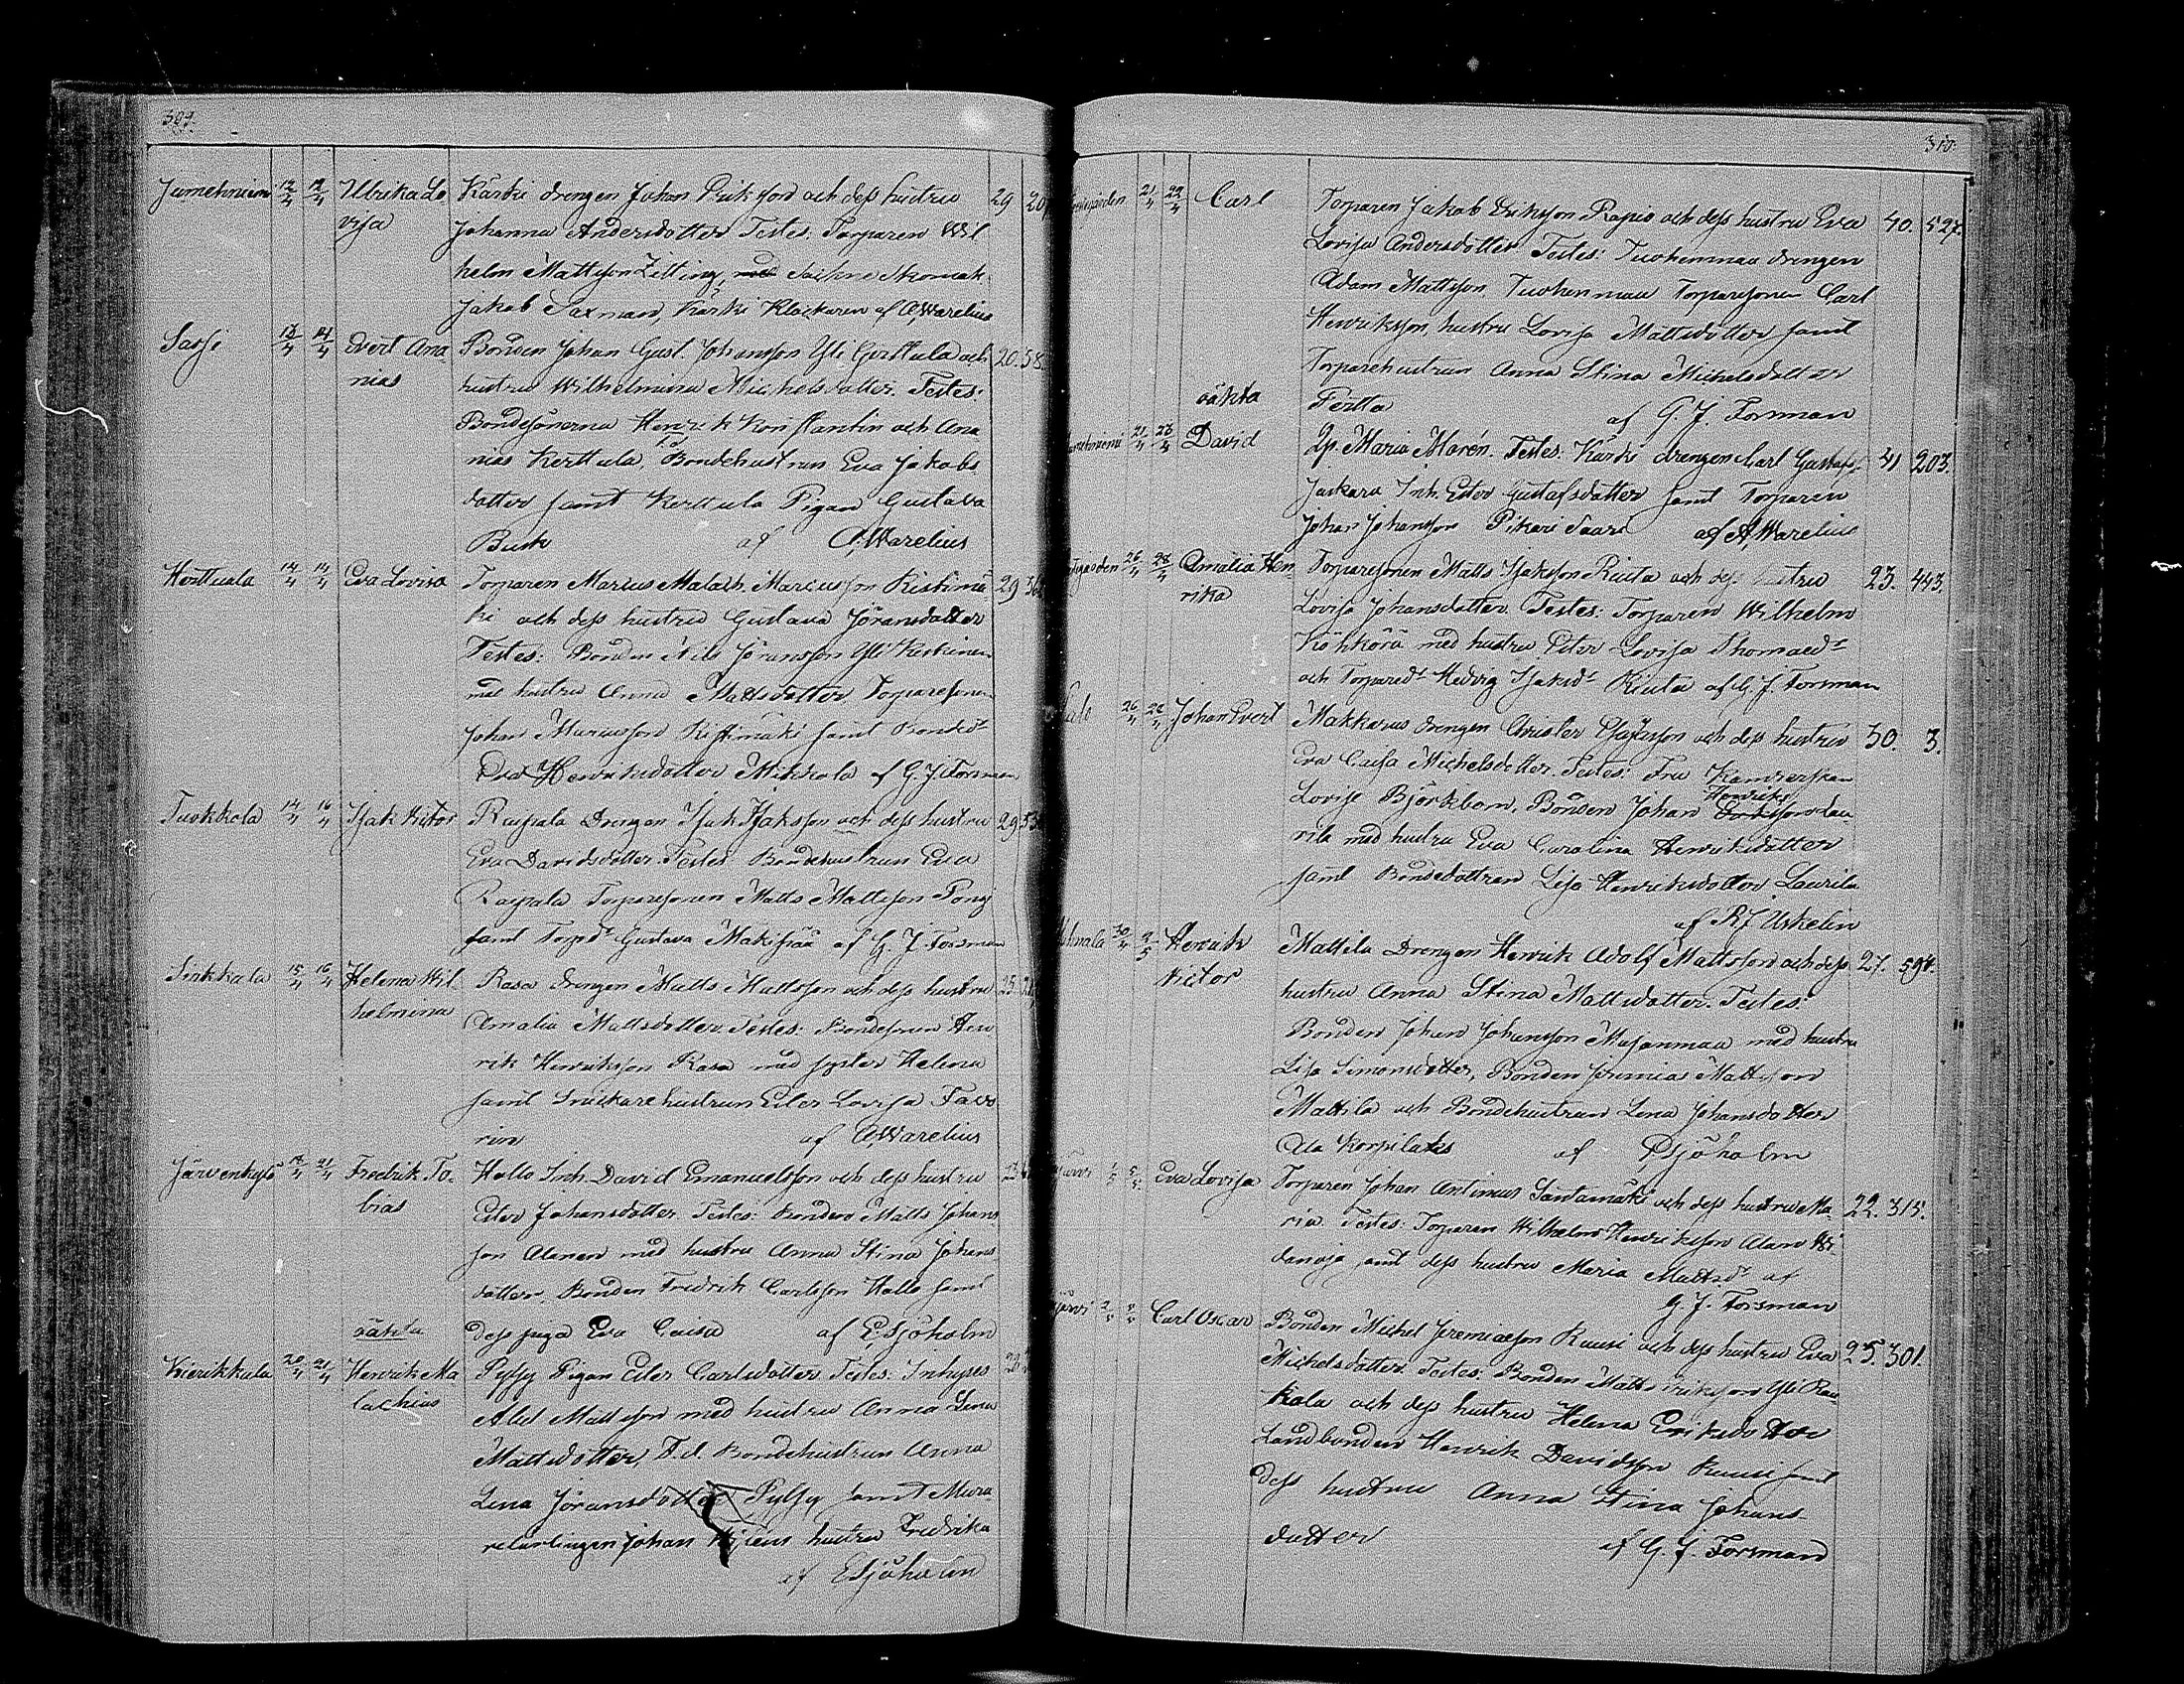 309.
Jumehniemi 12/4 12/4 Ulrika Lo Kärki drengen Johan Erikssons och dess hustru 29
visa Johanna Andersdotter Testes: Torparen Wil
helm Mattsson Zitting, Skomak.
Jakob Saxman, Kärki Klockaren af A. Warelius
Sassi 13/4 14/4 Evert Ana- Bonden Johan Gust. Johansson Yli Kerttula och 20. 58.
nias hustru Wilhelmina Michelsdotter. Testes:
Bondesönerna Henrik Konstantin och Ana
nias Kerttula, Bondehustrun Eva Jakobs
dotter samt Kerttula Pigan Gustava
Busk af A. Warelius
Herttuala 14/4 14/4 Eva Lovisa Torparen Marcus Malach. Marcusson Ristimä- 29
ki och dess hustru Gustava Jöransdotter
Testes: Bonden Nils Jöransson Yli Keskinen
med hustru Anna Mattsdotter, Torparesonen
Johan Mariusson Ristimäki samt Bonded:r
Eva Henriksdotter Mikkola af G. J. Forsman
Tuokkola 14/4 16/4 Isak Victor Raipala Drengen Isak Isaksson och dess hustru 29
Eva Davidsdotter. Testes Bondehustrun Eva
Raipala Torparesonen Matts Mattsson
samt Torpd:r Gustava Makisrää af G. J. Forsman
Sinkkala 15/4 16/4 Helena Wil Rasa drengen Matts Mattsson och dess hustru 25
helmina Amalia Mattsdotter. Testes: Bondesonen Hen
rik Henriksson Rasa med syster Helena
samt Snickarehustrun Ester Lovisa Favo
rin af A. Warelius
Järvenkylä 18/4 21/4 Fredrik To- Hallo Inh. David Emanuelsson och dess hustru
bias Ester Johansdotter. Testes: Bonden Matts Johans
son Alanen med hustru Anna Stina Johans
dotter, Bonden Fredrik Carlsson Hallo samt
oäkta dess piga Eva Caisa af E. Sjöholm
Kierikkala 20/4 21/4 Henrik Ma Pylsy Pigan Ester Carlsdotter Testes: Inhyses
lachias Abel Mattsson med hustru Anna Lena
Mattsdotter, F.d. Bondehustrun Anna
Lena Jöransdotter Pylsy samt Mura
relärlingen Johan hustru Fredrika
af E. Sjöholm
310.
21/4 22/4 Carl Torparen Jakob Eriksson Rapio och dess hustru Eva 40. 527.
Lovisa Andersdotter Testes: Tuohenmaa drengen
Adam Mattsson, Tuohenmaa Torparesonen Carl
Henriksson, hustru Lovisa Mattsdotter samt
Torparehustrun Anna Stina Michelsdotter
oäkta Pertta af G. J. Forsman
21/4 23/4 David Qp. Maria Morén. Testes: Kärki drengen Carl Gustafs: 41 203.
Jaskara Inh. Ester Gustafsdotter samt Torparen
Johan Johansson Pikari Saari af A. Warelius
26/4 28/4 Amalia Hen- Torparesonen Matts Isaksson Riuta och dess hustru 23. 443.
rika Lovisa Johansdotter. Testes: Torparen Wilhelm
Köhkörä med hustru Ester Lovisa Thomaed:r
och Torpared:r Hedvig Isaksd:r Riuta af G. J. Forsman
26/4 28/4 Johan Evert Makkarus drengen Christer Esaiasson och dess hustru 30. 3.
Eva Caisa Michelsdotter. Testes: Fru Kamrerskan
Lovise Björkbom, Bonden Johan Henriks Lau
rila med hustru Eva Carolina Henriksdotter
samt Bondedottren Lisa Henriksdotter Laurila
af R. J. Uskelin
30/4 2/5 Henrik Mattila Drengen Henrik Adolf Mattsson och dess 27. 594.
Victor hustru Anna Stina Mattsdotter. Testes:
Bonden Johan Johansson Majanmaa med hustru
Lisa Simonsdotter, Bonden Jeremias Mattsson
Mattila och Bondehustrun Lena Johansdotter
Ala Korpilaks af E. Sjöholm
Eva Lovisa Torparen Johan Antinus Santamäki och dess hustru Ma- 22. 315.
ria. Testes: Torparen Wilhelm Henriksson Alanen
samt dess hustru Maria Mattsd:r af
G. J. Forsman
Carl Oscar Bonden Michel Jeremiasson Ruusi och dess hustru Eva 25. 301.
Michelsdotter. Testes: Bonden Matts Eriksson Yli Rau
kola och dess hustru Helena Eriksdotter
Landbonden Henrik Davidsson Ruusi samt
dess hustru Anna Stina Johans-
dotter af G. J. Forsman